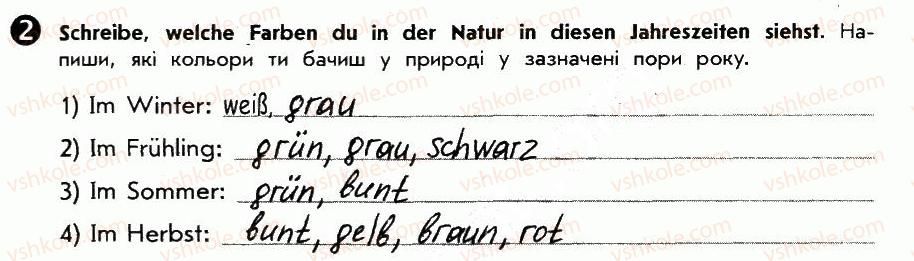 2 Schreibe, welche Farben du in der Natur in diesen Jahreszeiten siehst. На-
пиши, які кольори ти бачиш у природі у зазначені пори року.
1) Im Winter: weiß, grau
2) Im Frühling: grün, grau, schwarz
3) Im Sommer: grün, bunt
4) Im Herbst: bunt, gelb, braun, rot